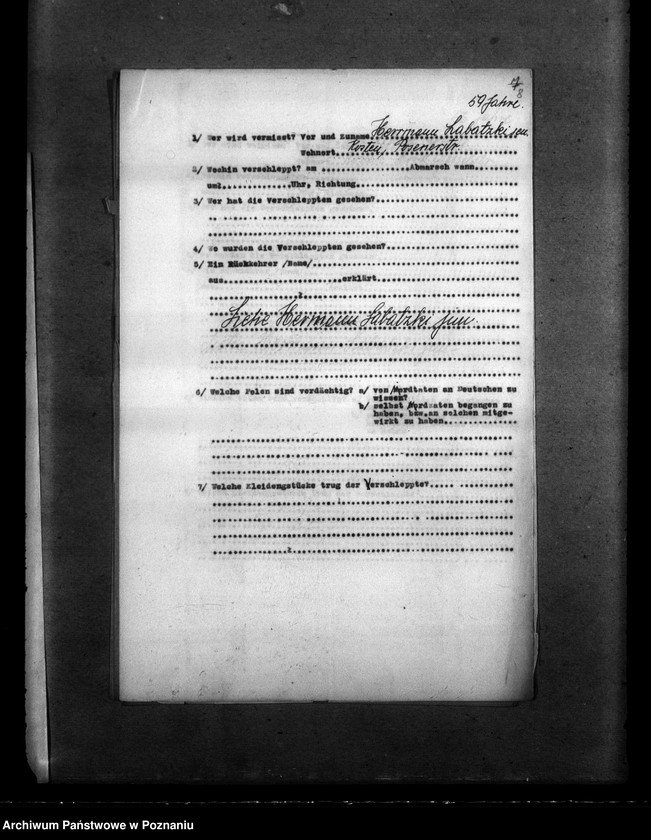 8
59 Jahre.
1/ Wer wird vermisst? Vor und Zuname Herrmann Labatzki sen.
Wohnort Kosten, Posenerstr.
2/ Wohin verschleppt? am ................Abmarsch wann.........
um:.............Uhr, Richtung...............................
3/ Wer hat die Verschleppten gesehen?...........................
4/ Wo wurden die Verschleppten gesehen?.........................
5/ Ein Rückkehrer /Name/.......................................
aus......................erklärt...........................
Siehe Hermann Labatzki jun.
6/ Welche Polen sind verdächtig? a/ von Mordtaten an Deutschen zu
wissen?
b/ selbst Mordtaten begangen zu
haben, bzw.an solchen mitge-
wirkt zu haben.............
7/ Welche Kleidungstücke trug der Verschleppte?..... ..........
Archiwum Państwowe w Poznaniu